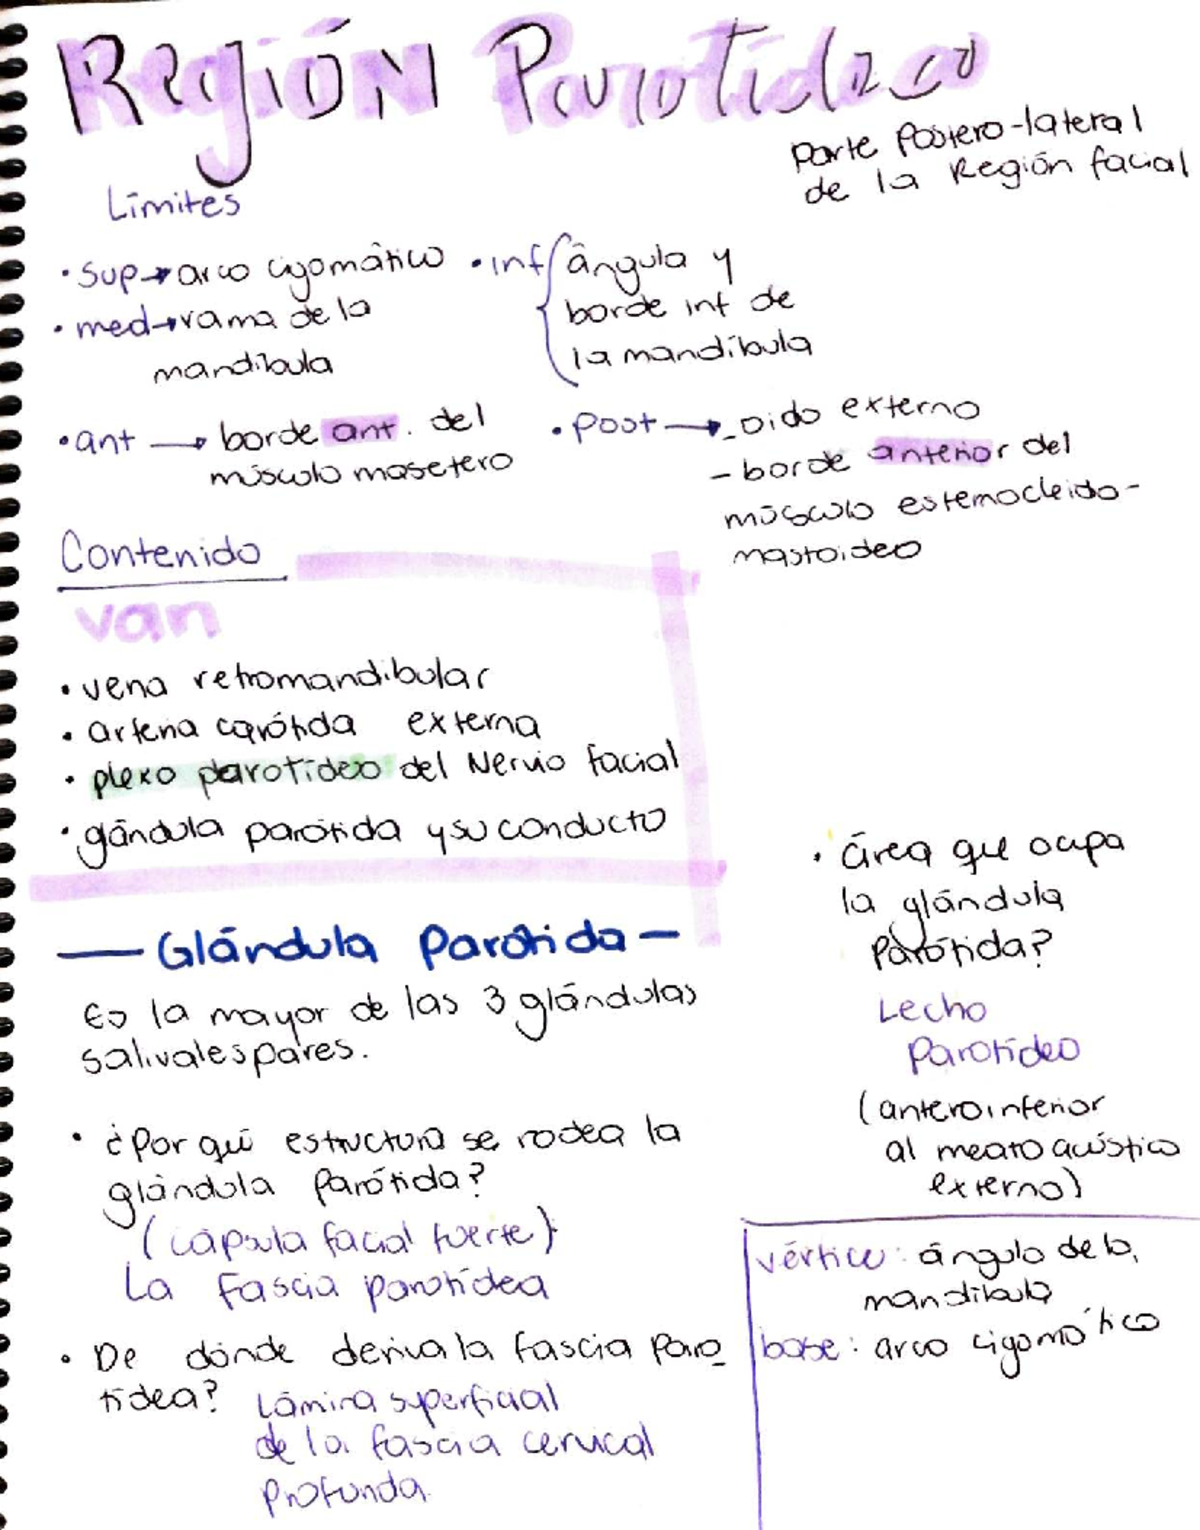 Región Parotídea
Parte Postero-lateral
de la Región facial
Límites
• Sup → arco cigomático
• med → rama de la
mandíbula
• inf { ángula y
borde inf de
la mandíbula
• ant → borde ant. del
músculo masetero
• Post → - oido externo
- borde anterior del
músculo esternocleido-
mastoideo
Contenido
van
• vena retromandibular
• arteria carótida externa
• plexo parotídeo del Nervio facial
• gándula parótida y su conducto
— Glándula Parótida —
Es la mayor de las 3 glándulas
salivales pares.
• ¿Por qué estructura se rodea la
glándula Parótida?
(cápsula facial fuerte)
La Fascia parotídea
• De dónde deriva la fascia Paro
tídea? Lámina superficial
de la fascia cervical
profunda.
• área que ocupa
la glándula
Parótida?
Lecho
Parotídeo
(anteroinferior
al meato acústico
externo)
vértice: ángulo de la
mandíbula
base: arco cigomático